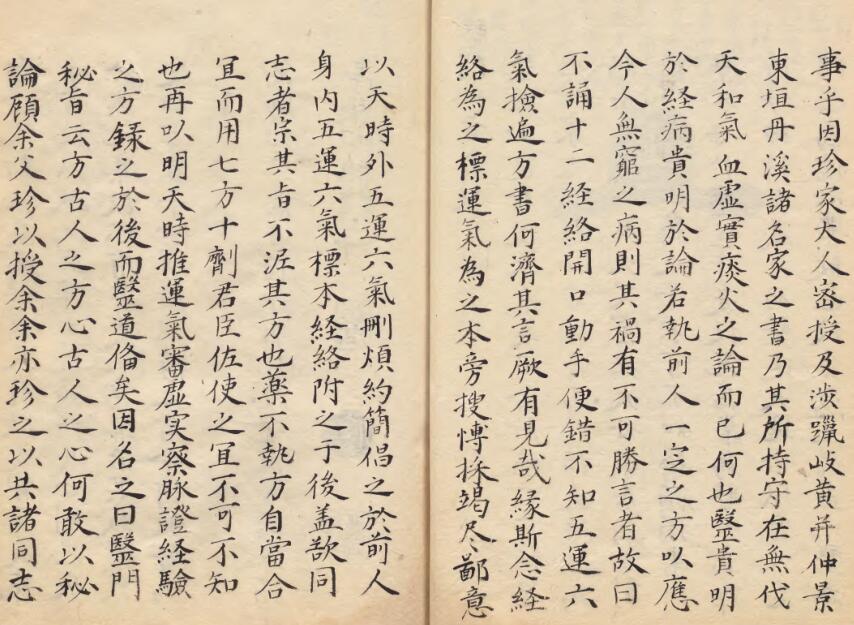 事乎因珍家大人密授及涉躐岐黄并仲景
東垣丹溪諸名家之書乃其所持守在無伐
天和氣血虛實痰火之論而已何也醫貴明
於経病貴明於論若執前人一定之方以應
今人無窮之病則其禍有不可勝言者故曰
不誦十二経絡開口動手便錯不知五運六
氣撿遍方書何濟其言厥有見哉緣斯念経
絡為之標運氣為之本旁搜愽採竭尽鄙意
以天時外五運六氣刪煩約簡倡之於前人
身內五運六氣標本経絡附之于後盖欲同
志者宗其旨不泥其方也藥不執方自當合
宜而用七方十劑君臣佐使之宜不可不知
也再以明天時推運氣審虛实察脉證経驗
之方録之於後而醫道俻矣因名之曰醫門
秘旨云方古人之方心古人之心何敢以秘
論顧余父珍以授余余亦珍之以共諸同志